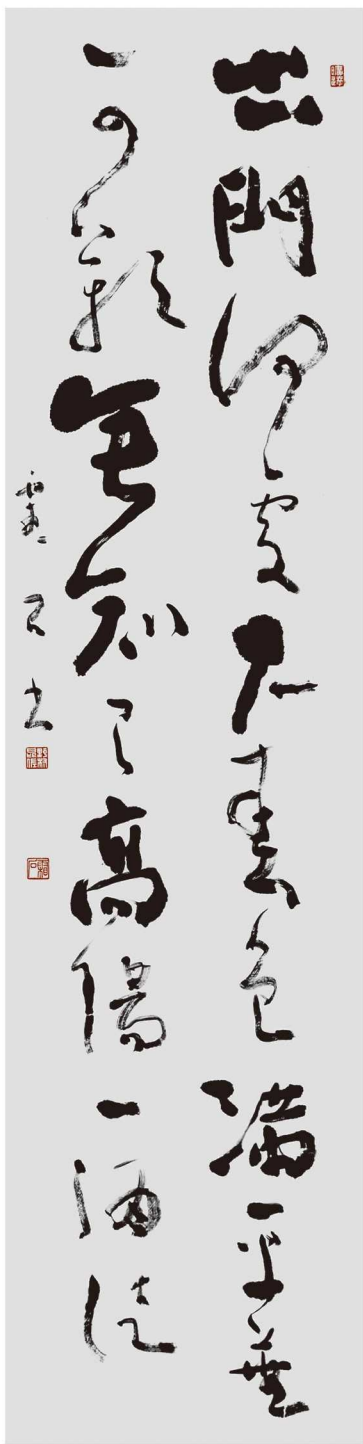 出門何所見春色滿平蕪
可歎無知己高陽一酒徒
石書